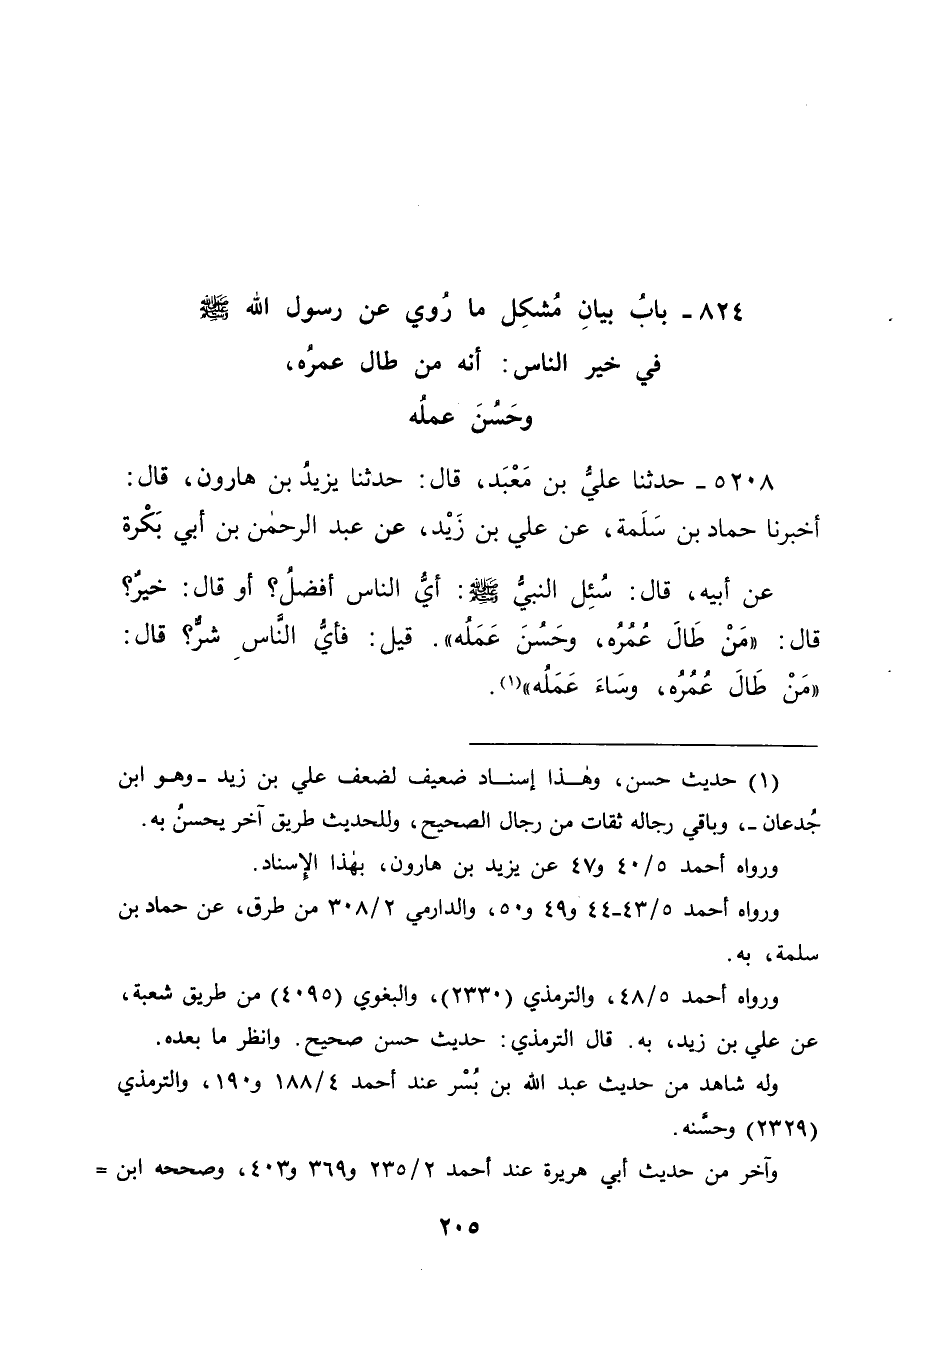 ٨٢٤ـ بابُ بيانِ مُشكِل ما رُوي عن رسول الله ﷺ
في خير الناس: أنه من طال عمرُه،
وحَسُنَ عملُه
٥٢٠٨ـ حدثنا عليُّ بن مَعْبَد، قال: حدثنا يزيدُ بن هارون، قال:
أخبرنا حماد بن سَلَمة، عن علي بن زَيْد، عن عبد الرحمٰن بن أبي بَكْرة
عن أبيه، قال: سُئِل النبيُّ ﷺ: أيُّ الناس أفضلُ؟ أو قال: خيرٌ؟
قال: «مَنْ طَالَ عُمُرُه، وحَسُنَ عَمَلُه». قيل: فأيُّ النَّاسِ شرٌّ؟ قال:
«مَنْ طَالَ عُمُرُه، وسَاءَ عَمَلُه»(١).
(١) حديث حسن، وهٰذا إسناد ضعيف لضعف علي بن زيد ـ وهو ابن
جُدعان ـ، وباقي رجاله ثقات من رجال الصحيح، وللحديث طريق آخر يحسنُ به.
ورواه أحمد ٤٠/٥ و٤٧ عن يزيد بن هارون، بهٰذا الإسناد.
ورواه أحمد ٤٣/٥ـ٤٤ و٤٩ و٥٠، والدارمي ٣٠٨/٢ من طرق، عن حماد بن
سلمة، به.
ورواه أحمد ٤٨/٥، والترمذي (٢٣٣٠)، والبغوي (٤٠٩٥) من طريق شعبة،
عن علي بن زيد، به. قال الترمذي: حديث حسن صحيح. وانظر ما بعده.
وله شاهد من حديث عبد الله بن بُسْر عند أحمد ١٨٨/٤ و١٩٠، والترمذي
(٢٣٢٩) وحسَّنه.
وآخر من حديث أبي هريرة عند أحمد ٢٣٥/٢ و٣٦٩ و٤٠٣، وصححه ابن =
٢٠٥